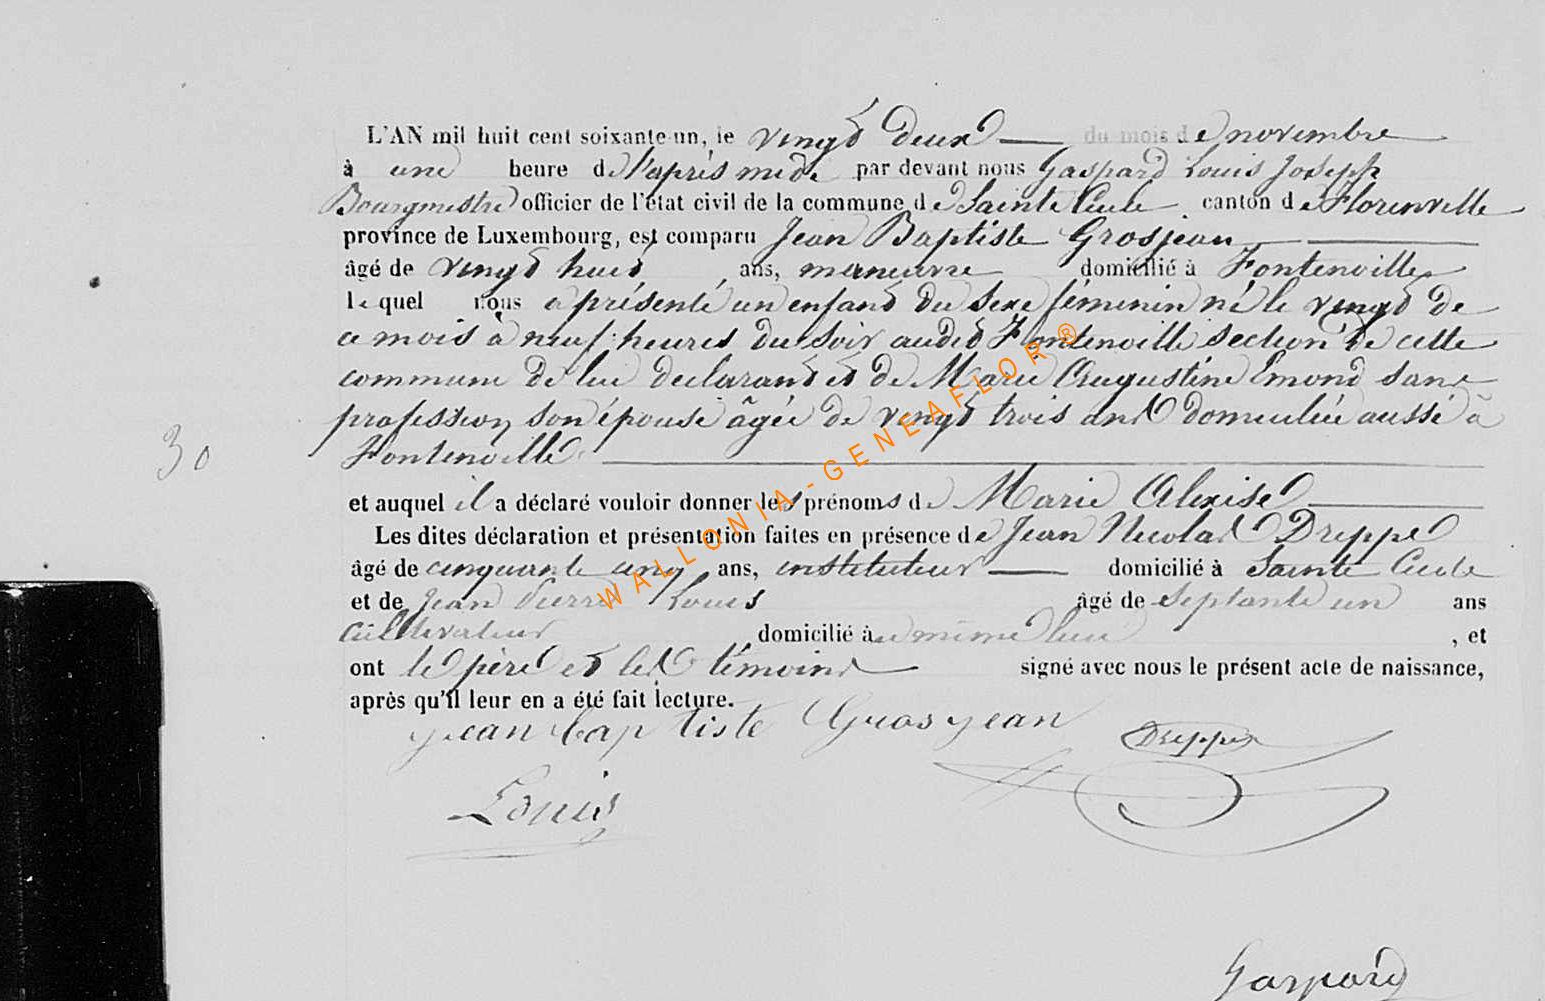 L'AN mil huit cent soixante-un, le vingt deux du mois de novembre
à une heure de l'après midi par devant nous Gaspard Louis Joseph
Bourgmestre officier de l'état civil de la commune de Sainte Cécile canton de Florenville
province de Luxembourg, est comparu Jean Baptiste Grosjean
âgé de vingt huit ans, maneuvre domicilié à Fontenoille
lequel nous a présenté un enfant du sexe féminin né le vingt de
ce mois à neuf heures du soir audit Fontenoille section de cette
commune de lui déclarant et de Marie Augustine Emond sans
profession son épouse âgée de vingt trois ans domiciliée aussi à
30
Fontenoille
et auquel il a déclaré vouloir donner les prénoms de Marie Alexise
Les dites déclaration et présentation faites en présence de Jean Nicolas Dreppe
âgé de cinquante cinq ans, instituteur domicilié à Sainte Cécile
et de Jean Pierre Louis âgé de septante un ans
cultivateur domicilié au même lieu, et
ont le père et les témoins signé avec nous le présent acte de naissance,
après qu'il leur en a été fait lecture.
jean baptiste Grosjean Dreppe
Louis
Gaspard
WALLONIA-GENEAFLOR ®